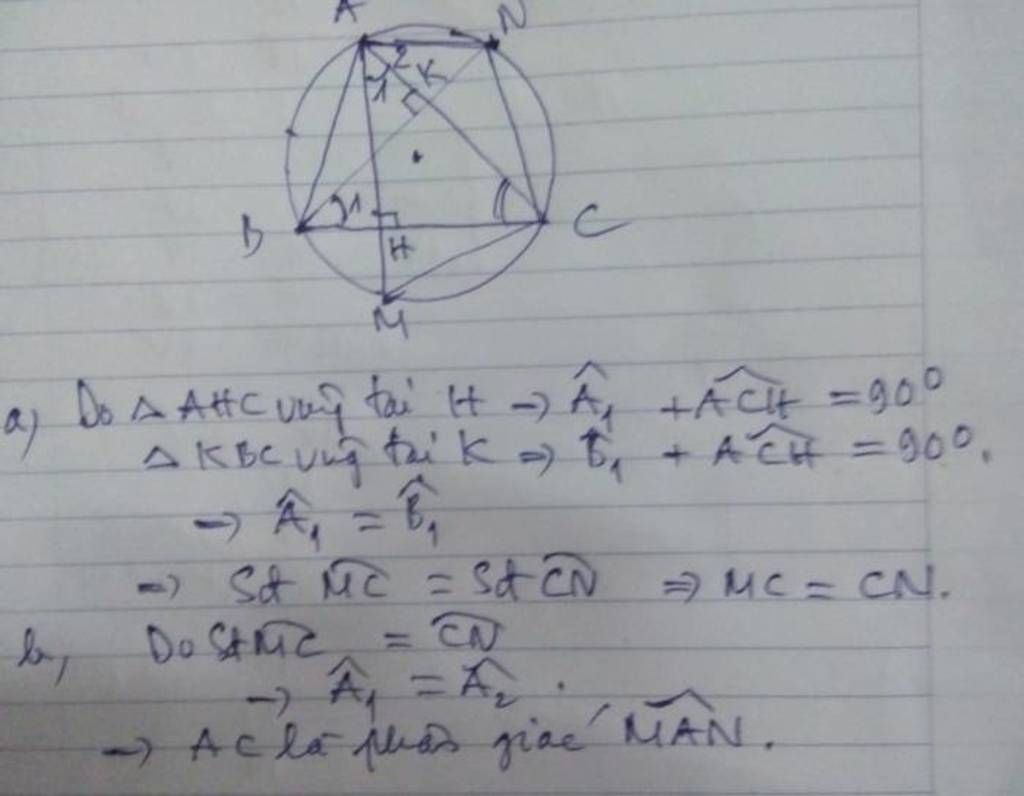 A N
1 2 K
B 1 H C
M
a) Do △ AHC vuông tại H → Â₁ + ACH͡ = 90⁰
△ KBC vuông tại K ⇒ B̂₁ + ACH͡ = 90⁰.
→ Â₁ = B̂₁
⇒ Sđ MC͡ = Sđ CN͡ ⇒ MC = CN.
b, Do Sđ MC͡ = CN͡
→ Â₁ = Â₂ .
→ AC là phân giác MAN͡ .